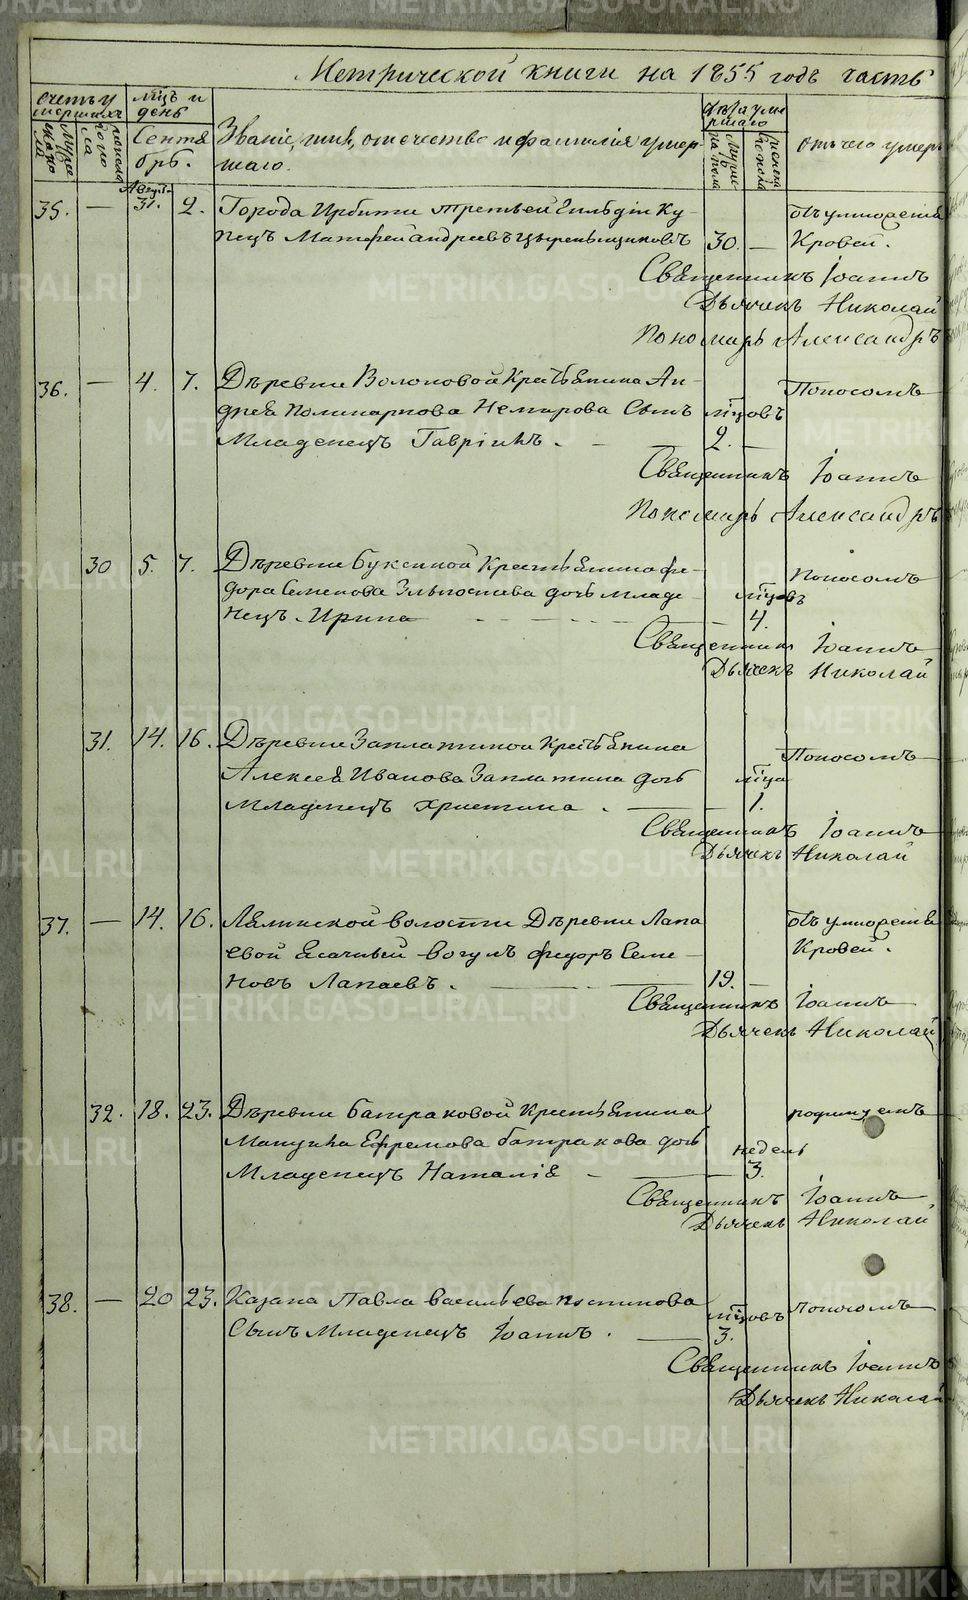 Метрической книги на 1855 годъ часть
Счетъ у
мершихъ
мцъ и
день
Лѣта уме
ршаго
Сентя
брь.
Званіе, имя, отечество и фамилія умер-
шаго.
Отъ чего умеръ
Авгус.
35. — 31. 2. Города Ирбити третьей Гильдіи Ку-
пецъ Матфей Андреевъ 30. —
отъ умноженія
Кровей.
Священникъ Іоаннъ
Дьячекъ Николай
Пономарь Александръ
36. — 4. 7. Дѣревни Волоковой Крестьянина Ан-
дрея Поликарпова Немирова Сынъ мцовъ
Младенецъ Гавріилъ. — 2. —
Поносомъ
Священникъ Іоаннъ
Пономарь Александръ
30 5. 7. Дѣревни Буксиной Крестьянина Фе-
дора Семенова дочь младе- мцовъ
нецъ Ирина 4.
Поносомъ
Священникъ Іоаннъ
Дьячекъ Николай
31. 14. 16. Дѣревни Заплатиной Крестьянина
Алексея Иванова Заплатина дочь мца
Младенецъ Христина. — 1.
Поносомъ
Священникъ Іоаннъ
Дьячекъ Николай
37. — 14. 16. Лялинской волости Дѣревни Лапа
евой Ясачный вогулъ Федоръ Семе-
новъ Лапаевъ. — 19. —
отъ умноженія
Кровей.
Священникъ Іоаннъ
Дьячекъ Николай
32. 18. 23. Дѣревни Батраковой Крестьянина
Ефремова Батракова дочь недель
Младенецъ Наталія — 3.
родимцемъ
Священникъ Іоаннъ
Дьячекъ Николай
38. — 20 23. Казака Павла Васильева Постникова мцовъ Поносомъ
Сынъ Младенецъ Іоаннъ. — 3.
Священникъ Іоаннъ
Дьячекъ Николай
METRIKI.GASO-URAL.RU